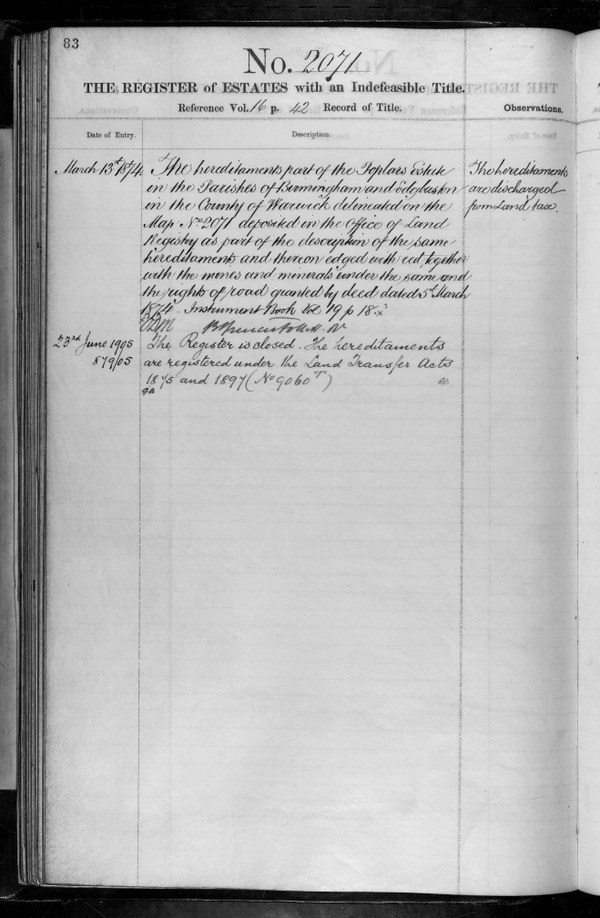 83
No. 2071
THE REGISTER of ESTATES with an Indefeasible Title.
Reference Vol. 16 p. 42 Record of Title.
Observations.
Date of Entry.
Description.
March 13th 1874
The hereditaments part of the Poplars Estate
in the Parishes of Birmingham and Edgbaston
in the County of Warwick delineated on the
Map No 2071 deposited in the Office of Land
Registry as part of the description of the same
hereditaments and thereon edged with red, together
with the mines and minerals under the same and
the rights of road granted by deed dated 5th March
1874 Instrument Book Vol 19 p 18
The hereditaments
are discharged
from Land tax.
23rd June 1905
87905
The Register is closed. The hereditaments
are registered under the Land Transfer Acts
1875 and 1897 (No 9060 T)